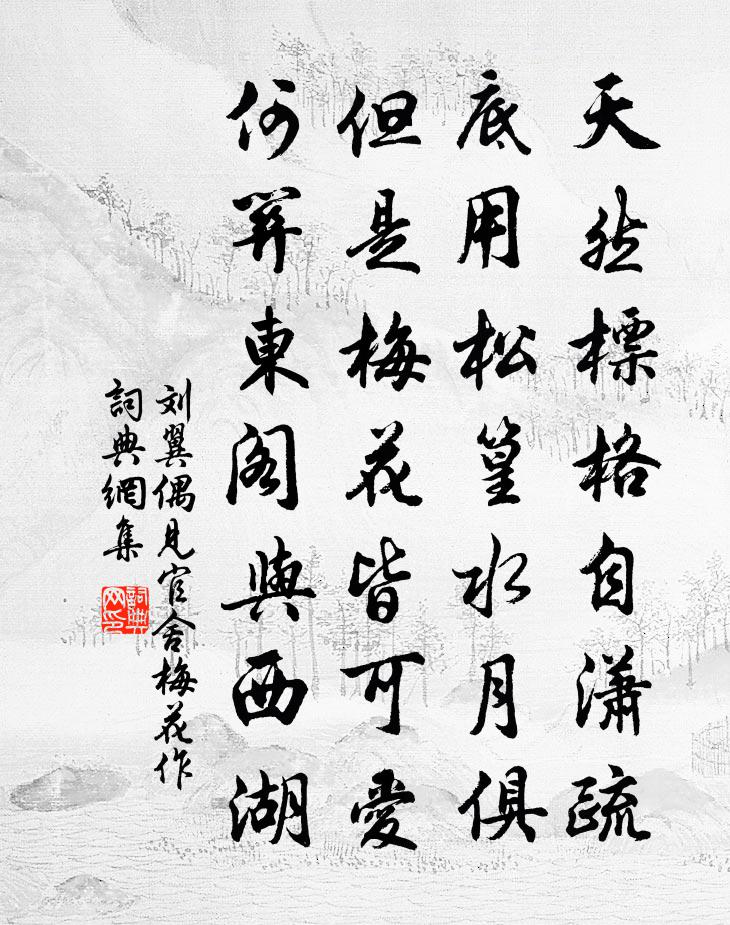 天然標格自瀟疏
底用松篁水月俱
但是梅花皆可愛
何羿東閣與西湖
刘翼偶見官舍梅花作
詞典網集
詞典网印